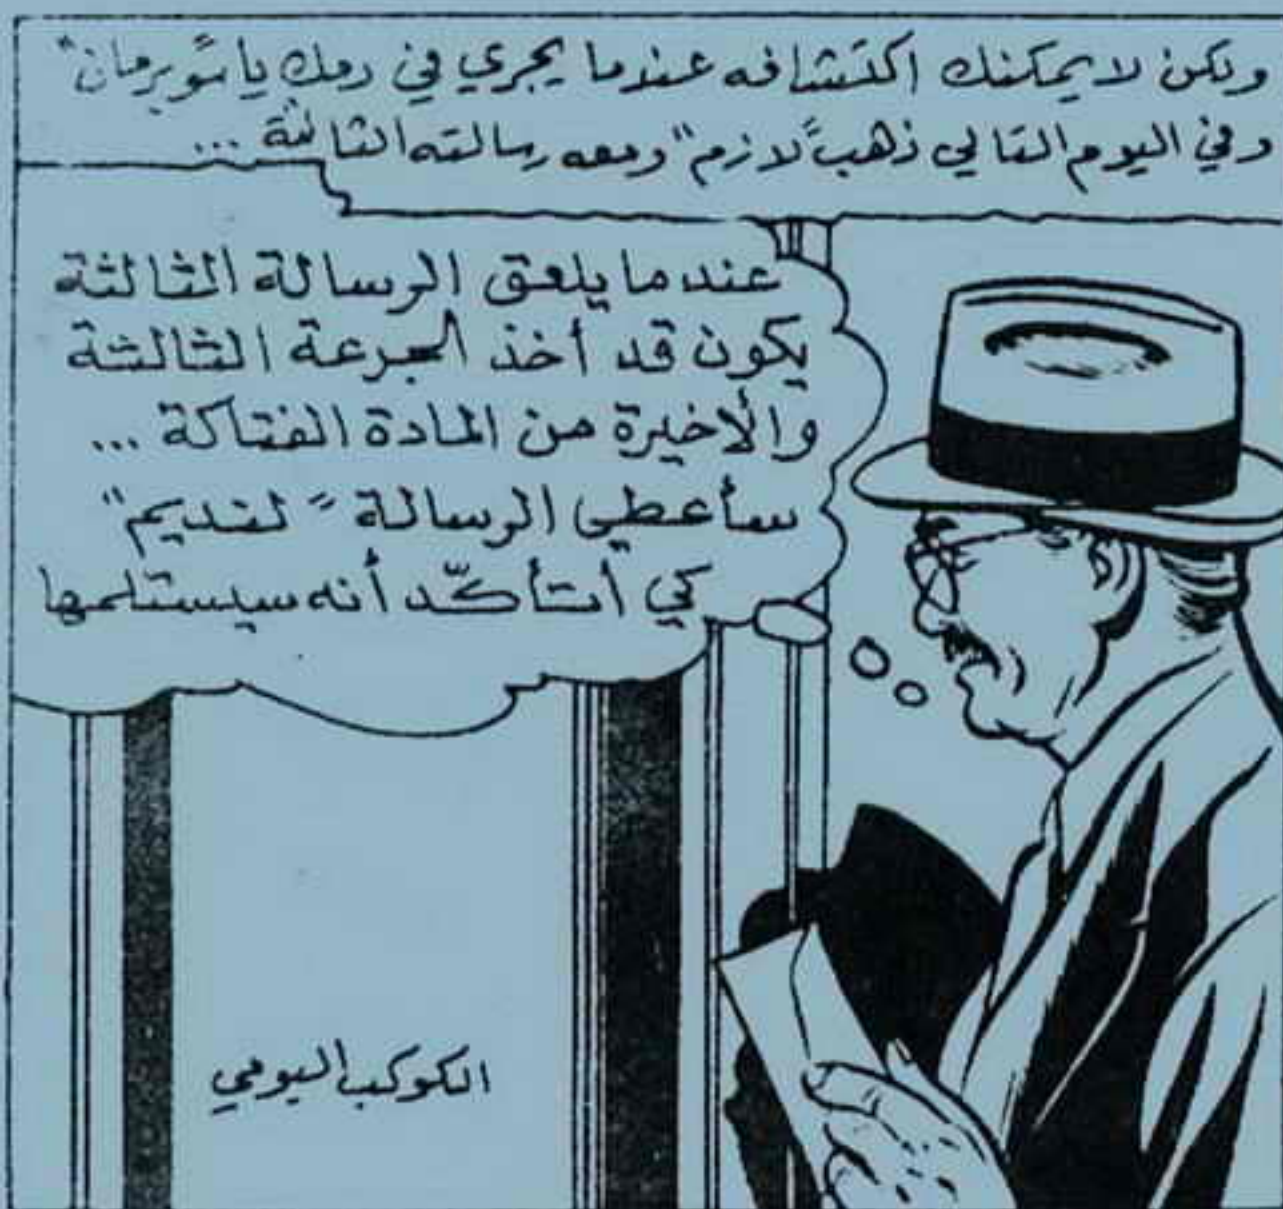 ولكن لا يمكنك اكتشافه عندما يجري في دمك يا سوبرمان"
وفي اليوم التالي ذهب "لازم" ومعه رسالته الثالثة ...
عندما يلعق الرسالة الثالثة
يكون قد أخذ الجرعة الثالثة
والأخيرة من المادة الفتاكة ...
سأعطي الرسالة "لنديم"
كي أتأكّد أنه سيستلمها
الكوكب اليومي